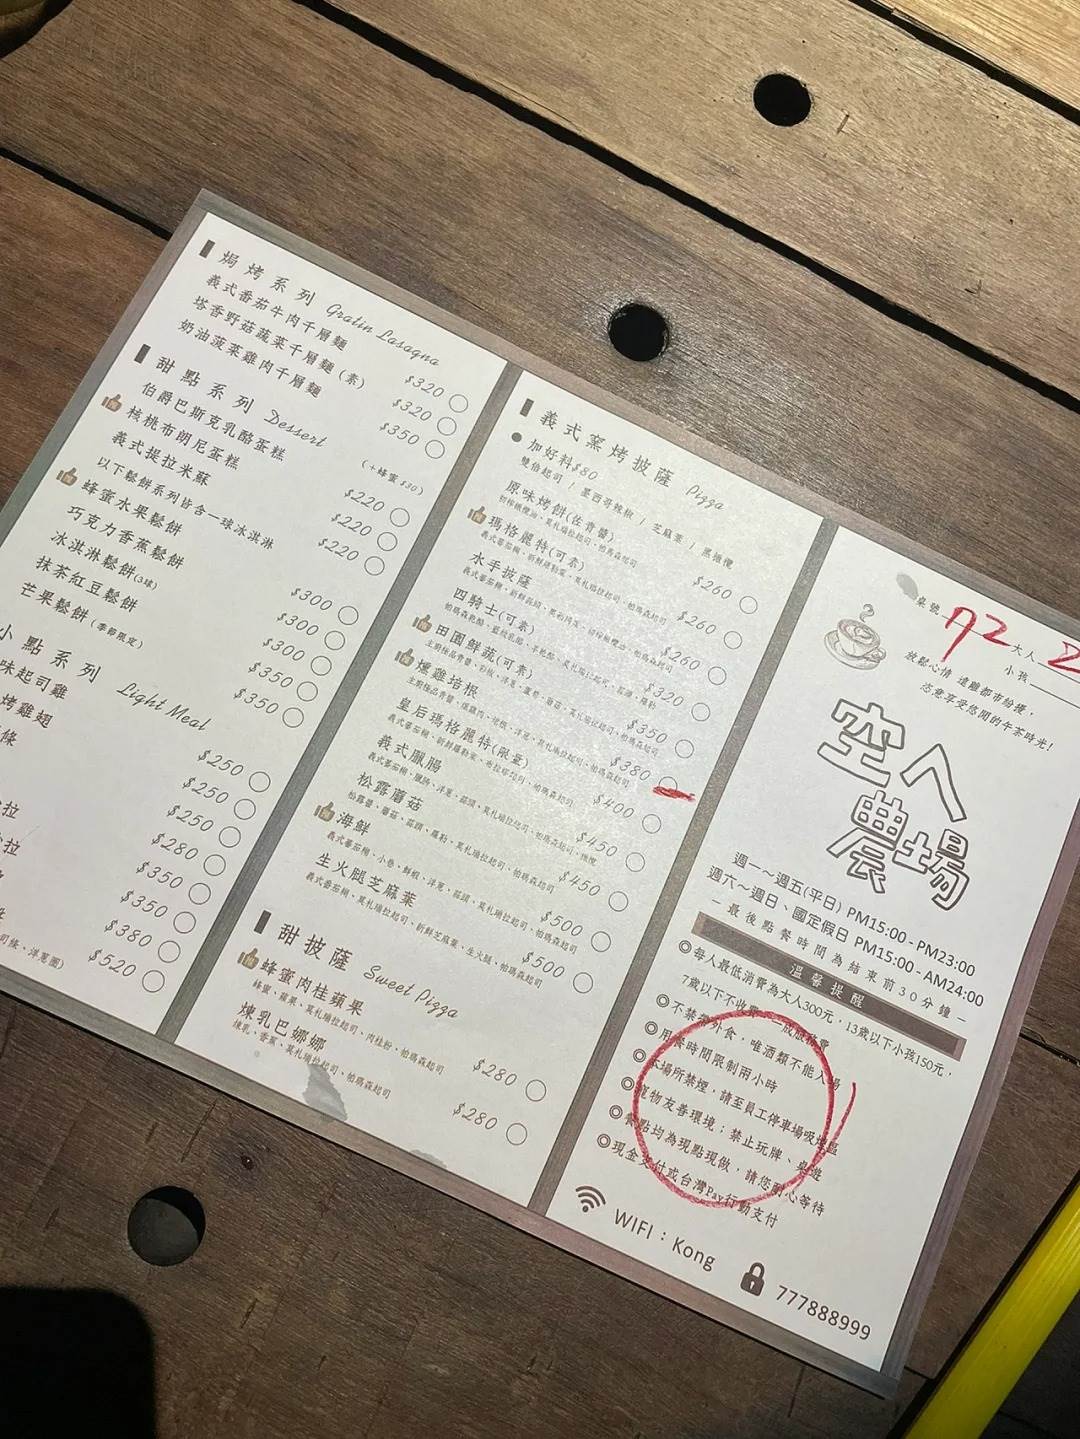 焗烤系列 Gratin Lasagna
義式番茄牛肉千層麵 $320
塔香野菇蔬菜千層麵（素） $320
奶油菠菜雞肉千層麵 $350
甜點系列 Dessert
（＋蜂蜜 $30）
伯爵巴斯克乳酪蛋糕 $220
核桃布朗尼蛋糕 $220
義式提拉米蘇 $220
以下鬆餅系列皆含一球冰淇淋
蜂蜜水果鬆餅 $300
巧克力香蕉鬆餅 $300
冰淇淋鬆餅(3球) $300
抹茶紅豆鬆餅 $350
芒果鬆餅（季節限定） $350
小點系列 Light Meal
味起司雞 $250
烤雞翅 $250
條 $250
$280
拉 $350
拉 $350
$380
$520
洋蔥圈）
義式窯烤披薩 Pizza
加好料$80
雙倍起司 / 墨西哥辣椒 / 芝麻葉 / 黑橄欖
原味烤餅(佐青醬) $260
初榨橄欖油、莫札瑞拉起司、帕瑪森起司
瑪格麗特(可素) $260
義式蕃茄糊、新鮮羅勒葉、莫札瑞拉起司、帕瑪森起司
水手披薩 $260
四騎士(可素) $320
田園鮮蔬(可素) $350
燻雞培根 $380
皇后瑪格麗特(限量) $400
義式臘腸 $450
松露蘑菇 $450
海鮮 $500
生火腿芝麻葉 $500
義式番茄糊、莫札瑞拉起司、新鮮芝麻葉、生火腿、帕瑪森起司
甜披薩 Sweet Pizza
蜂蜜肉桂蘋果 $280
蜂蜜、蘋果、莫札瑞拉起司、肉桂粉、帕瑪森起司
煉乳巴娜娜 $280
煉乳、香蕉、莫札瑞拉起司、帕瑪森起司
桌號 A2 大人 2
小孩
放鬆心情 遠離都市紛擾，
恣意享受悠閒的午茶時光!
空ㄟ農場
週一～週五(平日) PM15:00 - PM23:00
週六～週日、國定假日 PM15:00 - AM24:00
－最後點餐時間為結束前30分鐘－
溫馨提醒
◎每人最低消費為大人300元，13歲以下小孩150元，
7歲以下不收費，一成服務費
◎不禁帶外食，唯酒類不能入場
◎用餐時間限制兩小時
◎本場所禁煙，請至員工停車場吸煙區
◎寵物友善環境；禁止玩牌、桌遊
◎餐點均為現點現做，請您耐心等待
◎現金支付或台灣Pay行動支付
WIFI：Kong 777888999